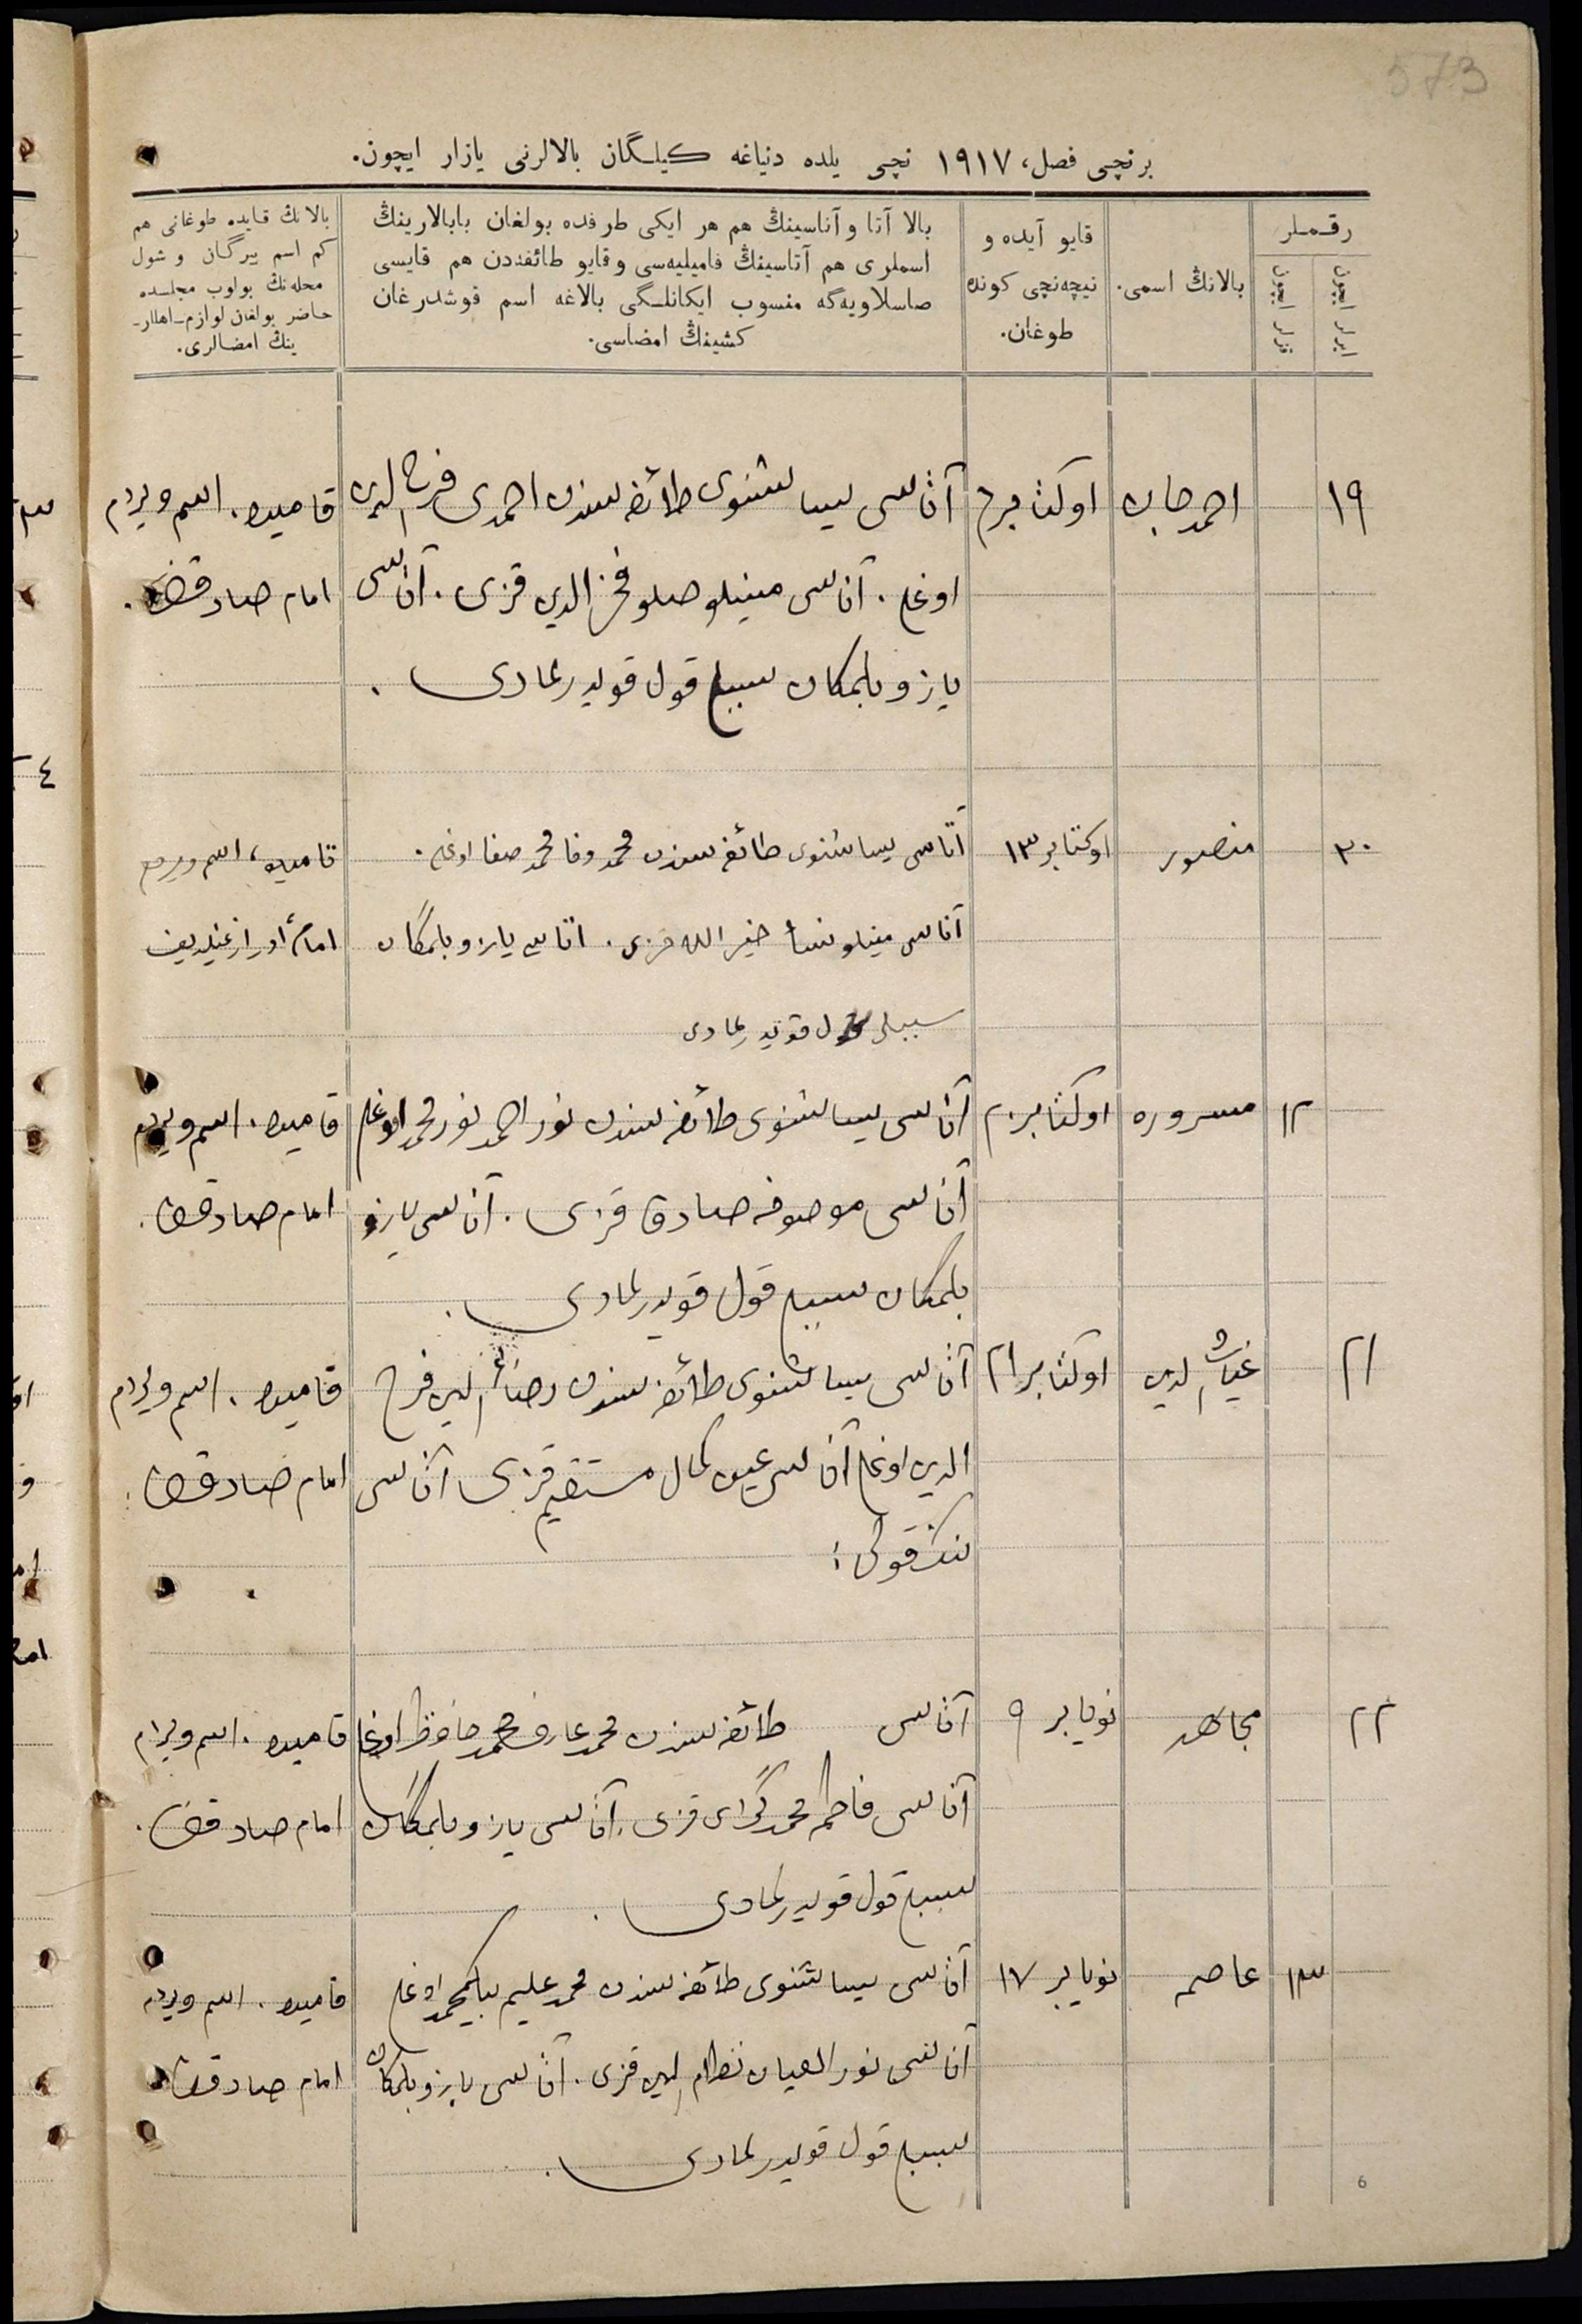 573
برنچی فصل، ١٩١٧ نچی یلده دنیاغه کیلگان بالالرنی یازار ایچون.
رقملر
ایرلر ایچون
قزلر ایچون
بالانڭ اسمی.
قایو آیده و
نیچه‌نچی کونده
طوغان.
بالا آتا و آناسینڭ هم هر ایکی طرفده بولغان بابالارینڭ
اسملری هم آتاسینڭ فامیلیه‌سی و قایو طائفه‌دن هم قایسی
صاسلاویه‌گه منسوب ایکانلگی بالاغه اسم قوشدرغان
کشینڭ امضاسی.
بالانڭ قایده طوغانی هم
کم اسم بیرگان و شول
محله‌نڭ بولوب مجلسده
حاضر بولغان لوازم-اهللر-
ینڭ امضالری.
١٩
احمدجان
اوکتابر ٣
آتاسی یساشنوی طائفه‌سندن احمدی فرح الدین
اوغلی. آناسی مینلوصلو فخرالدین قزی. آتاسی
یازو بلمکان سببلی قول قویدرلمادی.
قامیده. اسم ویردم
امام صادقف.
٢٠
منصور
اوکتابر ١٣
آتاسی یساشنوی طائفه‌سندن محمدوفا محمدصفا اوغلی.
آناسی مینلونسأ خیرالله قزی. آتاسی یازو بلمگان
سببلی قول قویدرلمادی
قامیده، اسم ویردم
امام
١٢
مسروره
اوکتابر ٢٠
آتاسی یساشنوی طائفه‌سندن نوراحمد نورمحمد اوغلی
آناسی موصوفه صادق قزی. آتاسی یازو
بلمکان سببلی قول قویدرلمادی.
قامیده. اسم ویردم
امام صادقف.
٢١
غیاث الدین
اوکتابر ٢١
آتاسی یساشنوی طائفه‌سندن رضاء الدین فرح
الدین اوغلی آناسی عین کمال مستقیم قزی آتاسی
ننڭ قولی:
قامیده. اسم ویردم
امام صادقف.
٢٢
مجاهد
نویابر ٩
آتاسی طائفه‌سندن محمدعارف محمدحافظ اوغلی
آناسی فاطمه محمدگرای قزی. آتاسی یازو بلمگان
سببلی قول قویدرلمادی.
قامیده. اسم ویردم
امام صادقف.
١٣
عاصمه
نویابر ١٧
آتاسی یساشنوی طائفه‌سندن محمدعلیم بیکمحمد اوغلی
آناسی نورالعیان نظام الدین قزی. آتاسی یازو بلمکان
سببلی قول قویدرلمادی.
قامیده. اسم ویردم
امام صادقف
6